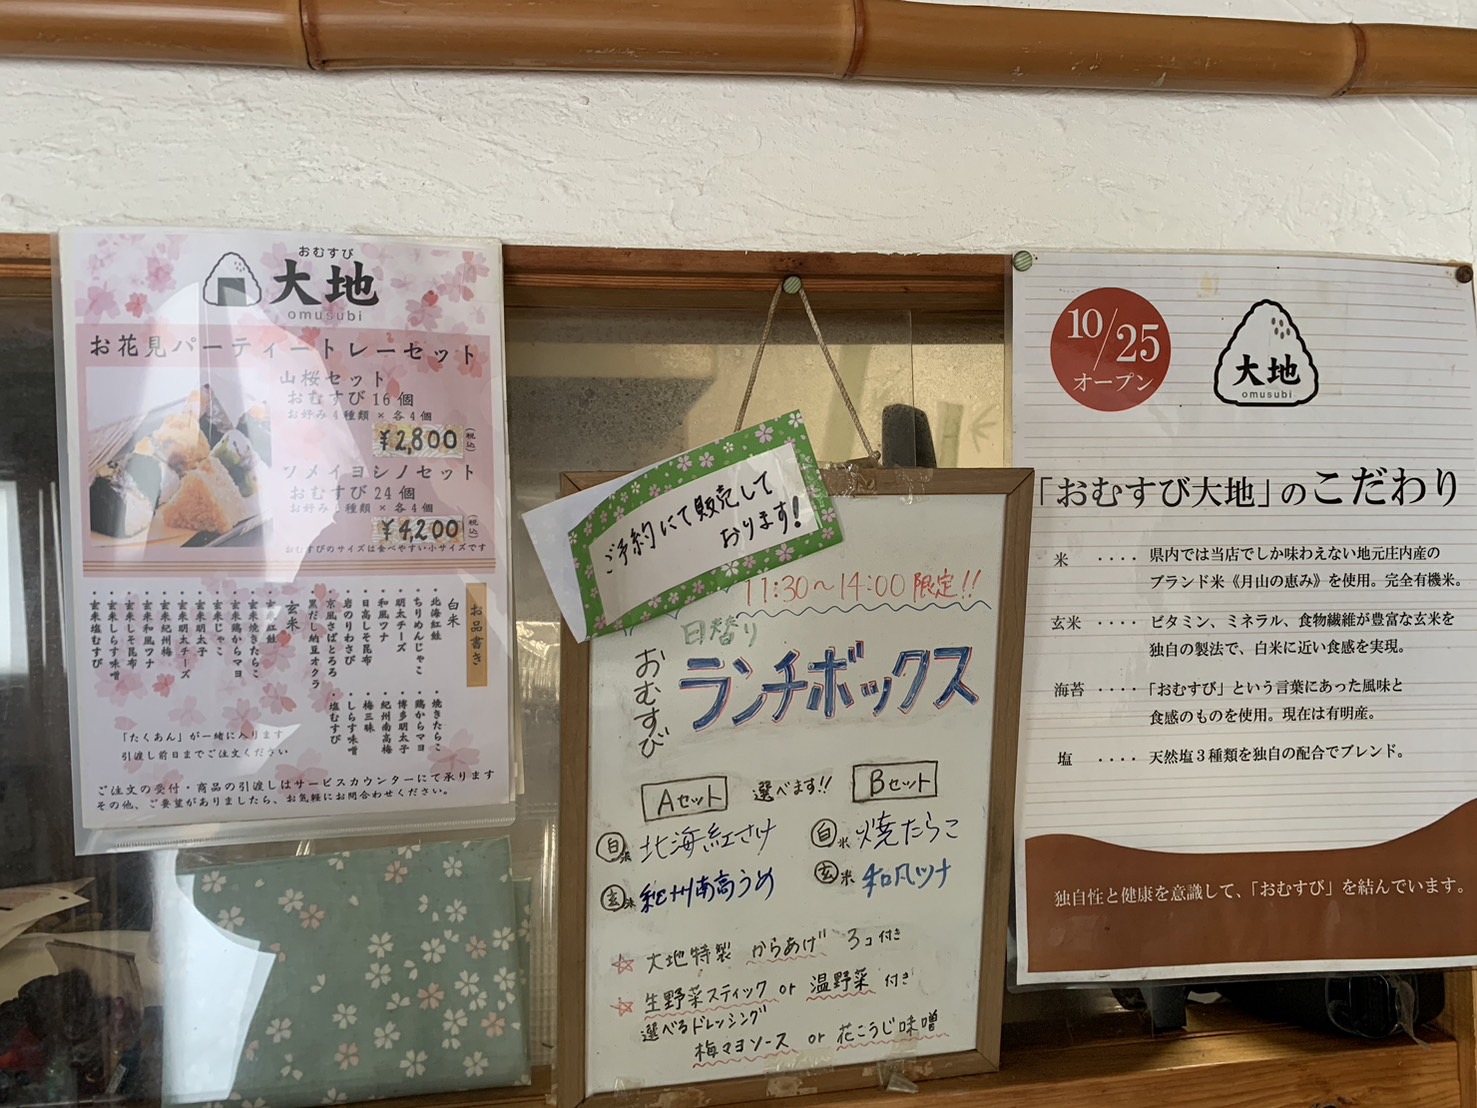 おむすび
大地
omusubi
お花見パーティートレーセット
山桜セット
おむすび16個
お好み4種類×各4個
¥2,800
(税込)
ソメイヨシノセット
おむすび24個
お好み 種類×各4個
¥4,200
(税込)
おむすびのサイズは食べやすい小サイズです
お品書き
白米
・北海紅鮭
・ちりめんじゃこ
・明太チーズ
・和風ツナ
・日高しそ昆布
・岩のりわさび
・京風さばとろろ
・黒だし納豆オクラ
・焼きたらこ
・鶏からマヨ
・博多明太子
・紀州南高梅
・梅三昧
・しらす味噌
・塩むすび
玄米
・玄米紅鮭
・玄米焼きたらこ
・玄米鶏からマヨ
・玄米じゃこ
・玄米明太子
・玄米明太チーズ
・玄米紀州梅
・玄米和風ツナ
・玄米しそ昆布
・玄米しらす味噌
・玄米塩むすび
「たくあん」が一緒に入ります
引渡し前日までご注文ください
ご注文の受付・商品の引渡しはサービスカウンターにて承ります
その他、ご要望がありましたら、お気軽にお問合わせください。
ご予約にて販売して
おります!
11:30〜14:00限定!!
日替り
おむすび
ランチボックス
Aセット
選べます!!
Bセット
白米 北海紅さけ
玄米 紀州南高うめ
白米 焼たらこ
玄米 和風ツナ
☆ 大地特製 からあげ 3コ付き
☆ 生野菜スティック or 温野菜 付き
選べるドレッシング
梅マヨソース or 花こうじ味噌
10/25
オープン
大地
omusubi
「おむすび大地」のこだわり
米 ‥‥ 県内では当店でしか味わえない地元庄内産の
ブランド米《月山の恵み》を使用。完全有機米。
玄米 ‥‥ ビタミン、ミネラル、食物繊維が豊富な玄米を
独自の製法で、白米に近い食感を実現。
海苔 ‥‥ 「おむすび」という言葉にあった風味と
食感のものを使用。現在は有明産。
塩 ‥‥ 天然塩3種類を独自の配合でブレンド。
独自性と健康を意識して、「おむすび」を結んでいます。